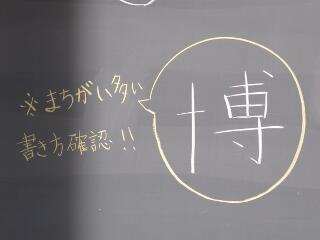 ※まちがい多い
書き方確認!!
博